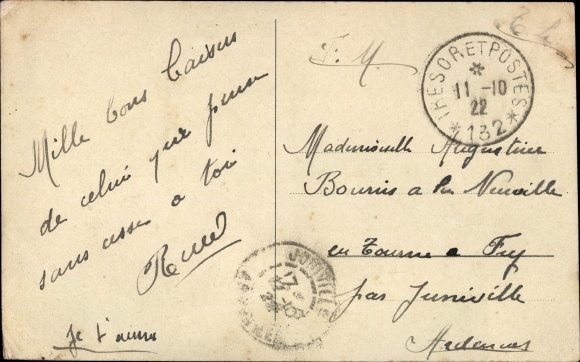 Mille bons baisers
de celui que pense
sans cesse a toi
Je t'aime
F. M.
TRESOR ET POSTES
11 -10
22
* 132 *
Mademoiselle Augustine
Bournis a La Neuville
en Tourne a Fuy
par Juniville
Ardennes
JUNIVILLE